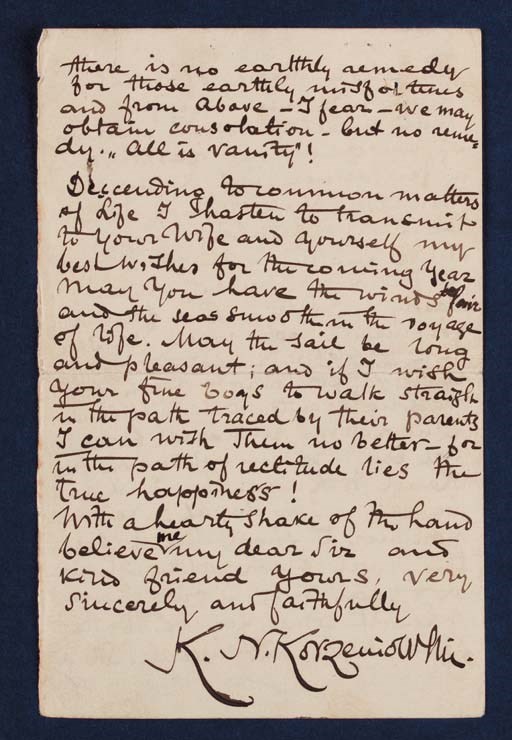 there is no earthly remedy
for those earthly misfortunes
and from Above – I fear – we may
obtain consolation – but no reme=
dy. „All is vanity"!
Descending to common matters
of Life I hasten to transmit
to Your Wife and Yourself my
best wishes for the coming Year
May You have the winds fair
and the seas smooth in the voyage
of life. May the sail be long
and pleasant; and if I wish
your fine boys to walk straigh
in the path traced by their parents
I can wish them no better – for
in the path of rectitude lies the
true happiness!
With a hearty shake of the hand
believe me my dear Sir and
kind friend yours, very
sincerely and faithfully
K. N. Korzeniowski.